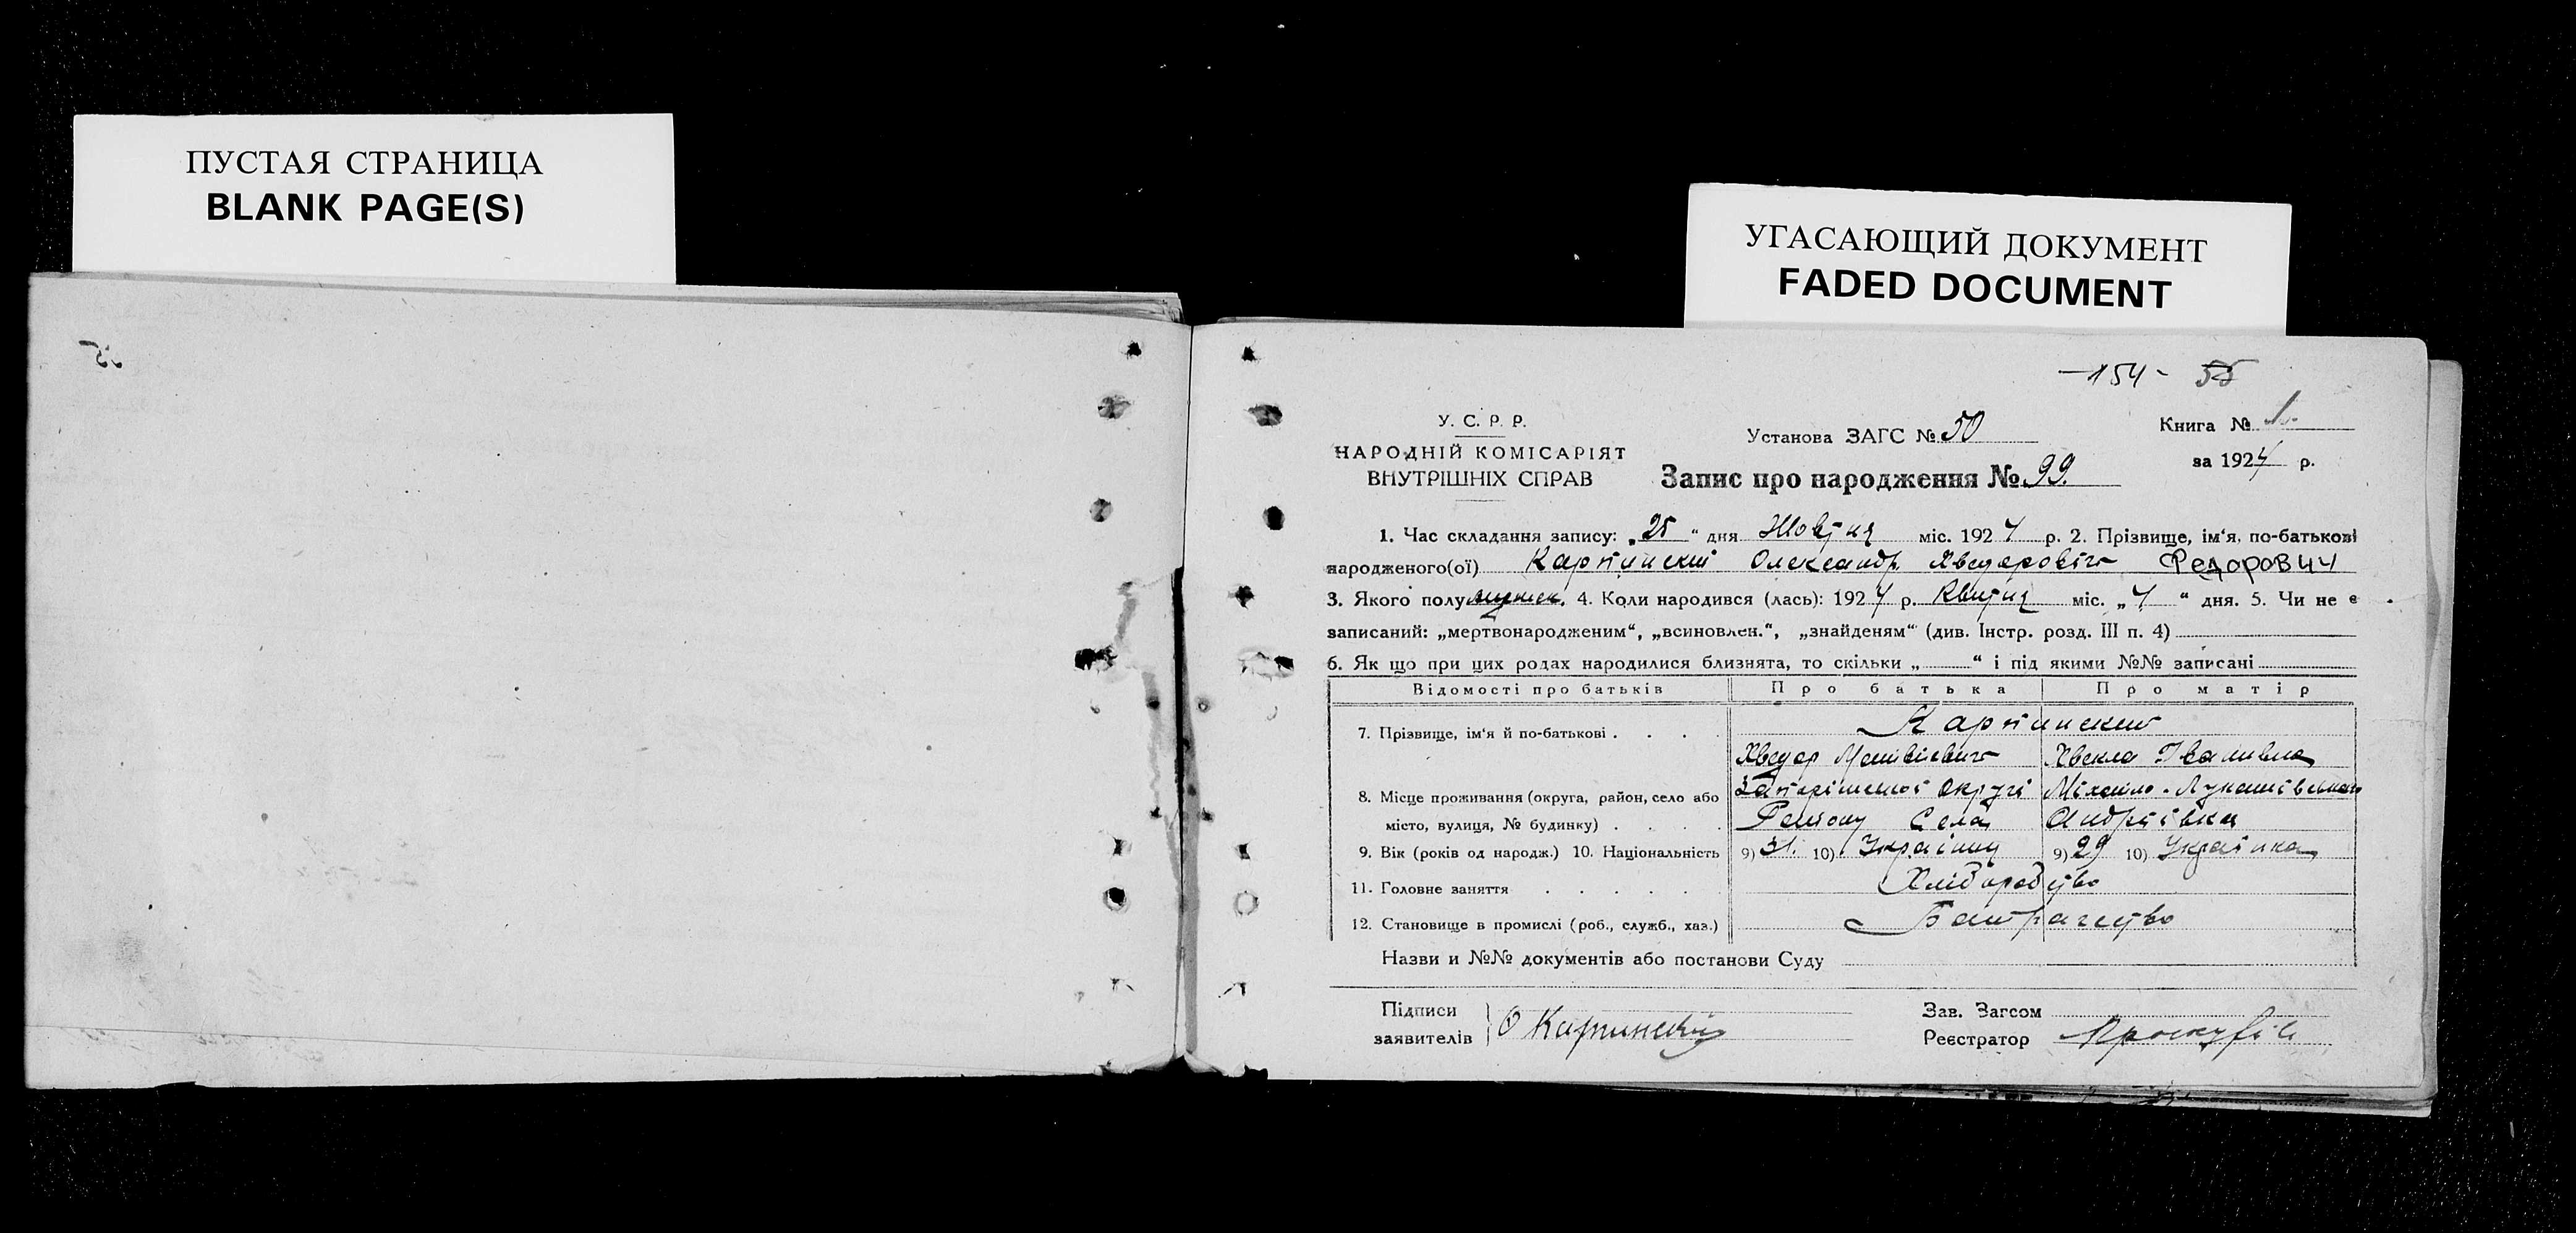 ПУСТАЯ СТРАНИЦА
BLANK PAGE(S)
УГАСАЮЩИЙ ДОКУМЕНТ
FADED DOCUMENT
-154- 55
У. С. Р. Р.
НАРОДНІЙ КОМІСАРІЯТ
ВНУТРІШНІХ СПРАВ
Установа ЗАГС № 50
Запис про народження № 99.
Книга № 1.
за 1924 р.
1. Час складання запису: „25“ дня Жовтня міс. 1924 р. 2. Прізвище, ім'я, по-батькові
народженого(ої) Карпинский Олександр Хведоровіч Федорович
3. Якого полу мужеск. 4. Коли народився (лась): 1924 р. Квитня міс. „4“ дня. 5. Чи не є
записаний: „мертвонародженим“, „всиновлен.“, „знайденям“ (див. Інстр. розд. III п. 4)
6. Як що при цих родах народилися близнята, то скільки „ “ і під якими №№ записані
Відомості про батьків Про батька Про матір
7. Прізвище, ім'я й по-батькові . . . . Карпинский
Хведор Матвієвич Хвекла Іванивна
8. Місце проживання (округа, район, село або Запорізської округі Міхайло-Лукашівського
місто, вулиця, № будинку) . . . . Району Села Андріївка
9. Вік (років од народж.) 10. Національність 9) 31. 10) Украінец 9) 29 10) Украінка
11. Головне заняття . . . . . . Хліборобство
12. Становище в промислі (роб., служб., хаз.) Батрачество
Назви и №№ документів або постанови Суду
Підписи
заявителів О Карпинский
Зав. Загсом
Реєстратор